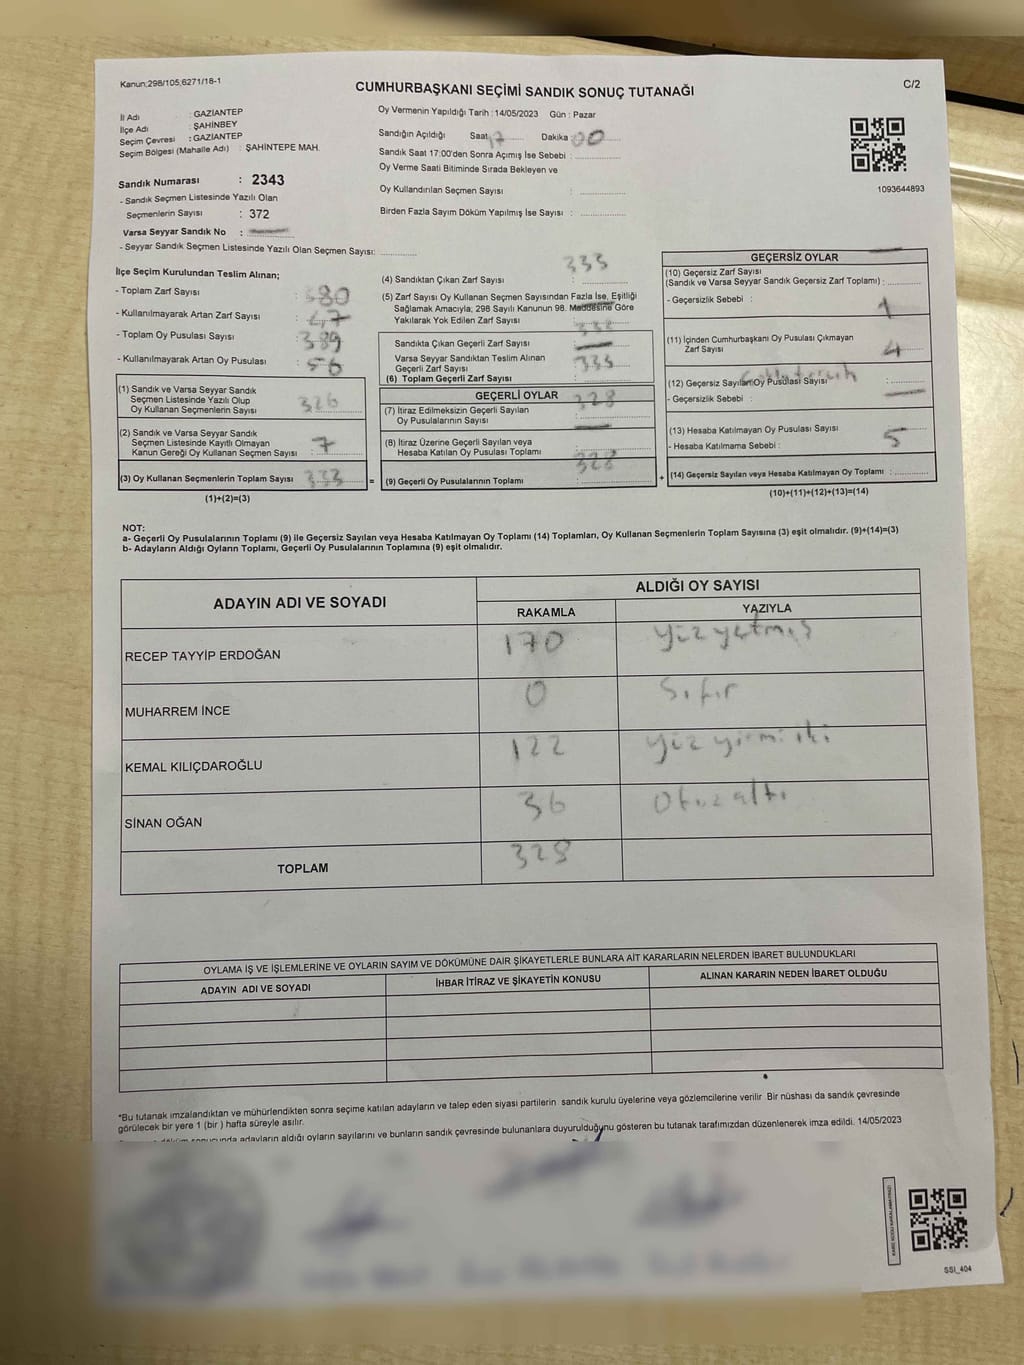 Kanun;298/105;6271/18-1
CUMHURBAŞKANI SEÇİMİ SANDIK SONUÇ TUTANAĞI
C/2
İl Adı : GAZİANTEP
İlçe Adı : ŞAHİNBEY
Seçim Çevresi : GAZİANTEP
Seçim Bölgesi (Mahalle Adı) : ŞAHİNTEPE MAH.
Oy Vermenin Yapıldığı Tarih : 14/05/2023 Gün : Pazar
Sandığın Açıldığı Saat 17 Dakika : 00
Sandık Saat 17:00'den Sonra Açımış İse Sebebi :
Oy Verme Saati Bitiminde Sırada Bekleyen ve
Oy Kullandırılan Seçmen Sayısı :
Birden Fazla Sayım Döküm Yapılmış İse Sayısı :
1093644893
Sandık Numarası : 2343
- Sandık Seçmen Listesinde Yazılı Olan
Seçmenlerin Sayısı : 372
Varsa Seyyar Sandık No :
- Seyyar Sandık Seçmen Listesinde Yazılı Olan Seçmen Sayısı:
İlçe Seçim Kurulundan Teslim Alınan;
- Toplam Zarf Sayısı : 380
- Kullanılmayarak Artan Zarf Sayısı : 47
- Toplam Oy Pusulası Sayısı : 389
- Kullanılmayarak Artan Oy Pusulası : 56
(1) Sandık ve Varsa Seyyar Sandık
Seçmen Listesinde Yazılı Olup
Oy Kullanan Seçmenlerin Sayısı : 326
(2) Sandık ve Varsa Seyyar Sandık
Seçmen Listesinde Kayıtlı Olmayan
Kanun Gereği Oy Kullanan Seçmen Sayısı : 7
(3) Oy Kullanan Seçmenlerin Toplam Sayısı : 333
(1)+(2)=(3)
(4) Sandıktan Çıkan Zarf Sayısı : 333
(5) Zarf Sayısı Oy Kullanan Seçmen Sayısından Fazla İse, Eşitliği
Sağlamak Amacıyla; 298 Sayılı Kanunun 98. Maddesine Göre
Yakılarak Yok Edilen Zarf Sayısı :
Sandıkta Çıkan Geçerli Zarf Sayısı :
Varsa Seyyar Sandıktan Teslim Alınan
Geçerli Zarf Sayısı :
(6) Toplam Geçerli Zarf Sayısı :
GEÇERLİ OYLAR
(7) İtiraz Edilmeksizin Geçerli Sayılan
Oy Pusulalarının Sayısı : 328
(8) İtiraz Üzerine Geçerli Sayılan veya
Hesaba Katılan Oy Pusulası Toplamı :
= (9) Geçerli Oy Pusulalarının Toplamı : 328
GEÇERSİZ OYLAR
(10) Geçersiz Zarf Sayısı
(Sandık ve Varsa Seyyar Sandık Geçersiz Zarf Toplamı) :
- Geçersizlik Sebebi :
1
(11) İçinden Cumhurbaşkanı Oy Pusulası Çıkmayan
Zarf Sayısı
4
(12) Geçersiz Sayılan Oy Pusulası Sayısı :
- Geçersizlik Sebebi :
(13) Hesaba Katılmayan Oy Pusulası Sayısı
- Hesaba Katılmama Sebebi :
5
+ (14) Geçersiz Sayılan veya Hesaba Katılmayan Oy Toplamı :
(10)+(11)+(12)+(13)=(14)
NOT:
a- Geçerli Oy Pusulalarının Toplamı (9) ile Geçersiz Sayılan veya Hesaba Katılmayan Oy Toplamı (14) Toplamları, Oy Kullanan Seçmenlerin Toplam Sayısına (3) eşit olmalıdır. (9)+(14)=(3)
b- Adayların Aldığı Oyların Toplamı, Geçerli Oy Pusulalarının Toplamına (9) eşit olmalıdır.
ADAYIN ADI VE SOYADI
ALDIĞI OY SAYISI
RAKAMLA YAZIYLA
RECEP TAYYİP ERDOĞAN 170 Yüz yetmiş
MUHARREM İNCE 0 Sıfır
KEMAL KILIÇDAROĞLU 122 Yüz yirmi iki
SİNAN OĞAN 36 Otuz altı
TOPLAM 328
OYLAMA İŞ VE İŞLEMLERİNE VE OYLARIN SAYIM VE DÖKÜMÜNE DAİR ŞİKAYETLERLE BUNLARA AİT KARARLARIN NELERDEN İBARET BULUNDUKLARI
ADAYIN ADI VE SOYADI İHBAR İTİRAZ VE ŞİKAYETİN KONUSU ALINAN KARARIN NEDEN İBARET OLDUĞU
*Bu tutanak imzalandıktan ve mühürlendikten sonra seçime katılan adayların ve talep eden siyasi partilerin sandık kurulu üyelerine veya gözlemcilerine verilir. Bir nüshası da sandık çevresinde
görülecek bir yere 1 (bir ) hafta süreyle asılır.
adayların aldığı oyların sayılarını ve bunların sandık çevresinde bulunanlara duyurulduğunu gösteren bu tutanak tarafımızdan düzenlenerek imza edildi. 14/05/2023
SSI_404